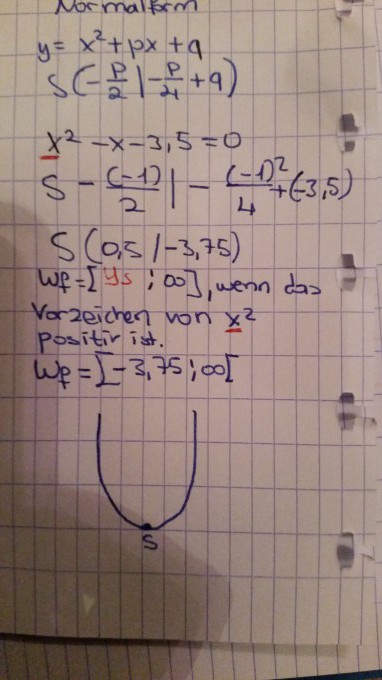 Normalform
y = x² + px + q
S(-p/2 | -p/4 + q)
x² - x - 3,5 = 0
S - (-1)/2 | - (-1)²/4 + (-3,5)
S (0,5 / -3,75)
Wf = [ys ; ∞], wenn das
Vorzeichen von x²
positiv ist.
Wf = [-3,75 ; ∞[
S